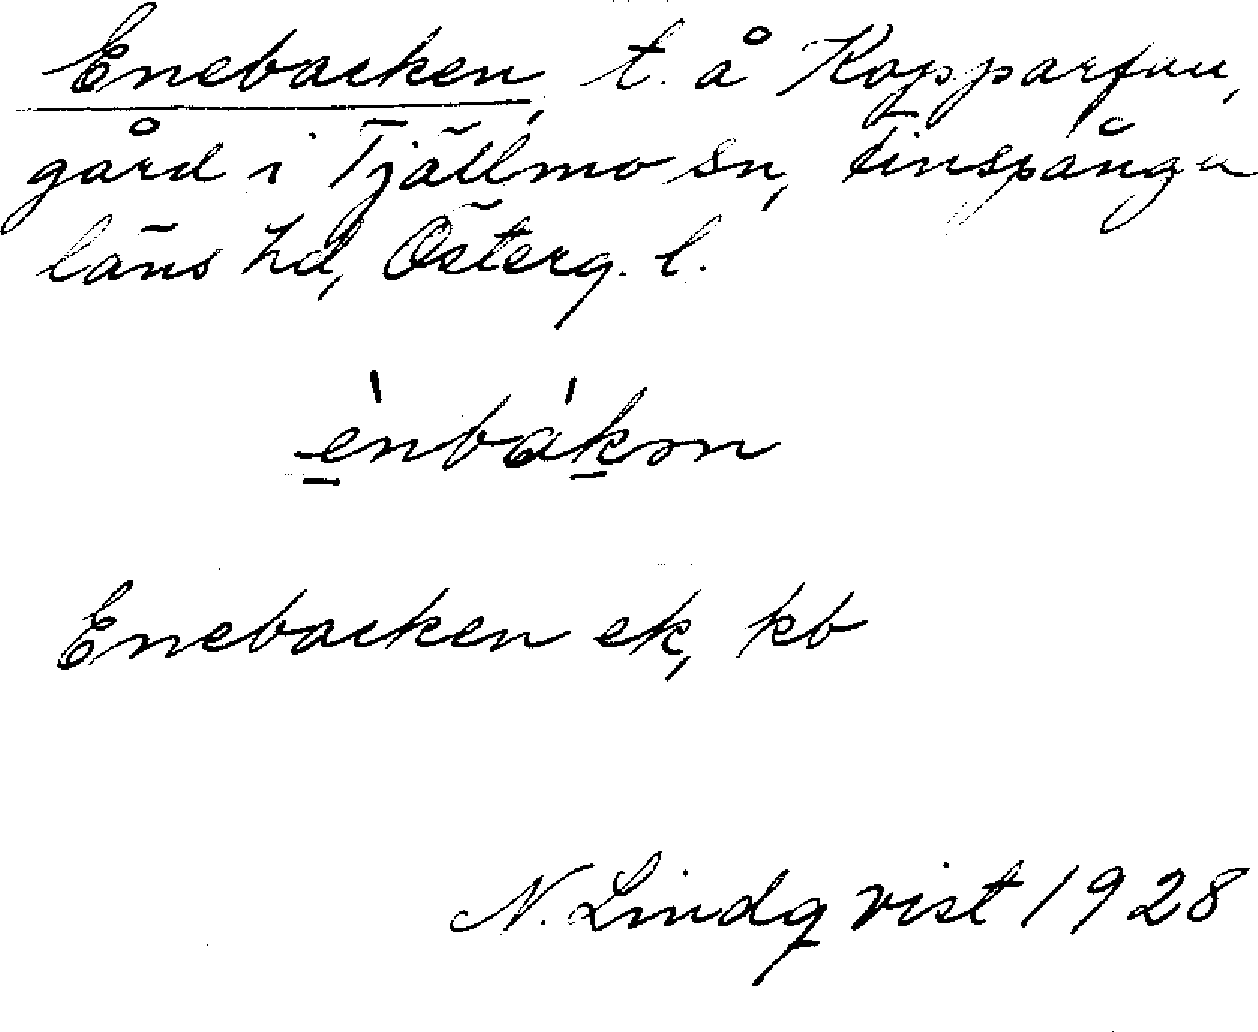 Enebacken, t. å Kopparfau,
gård i Tjällmo sn, Finspånga
läns hd, Österg. l.
ènbákən
Enebacken ek, kb
N. Lindqvist 1928